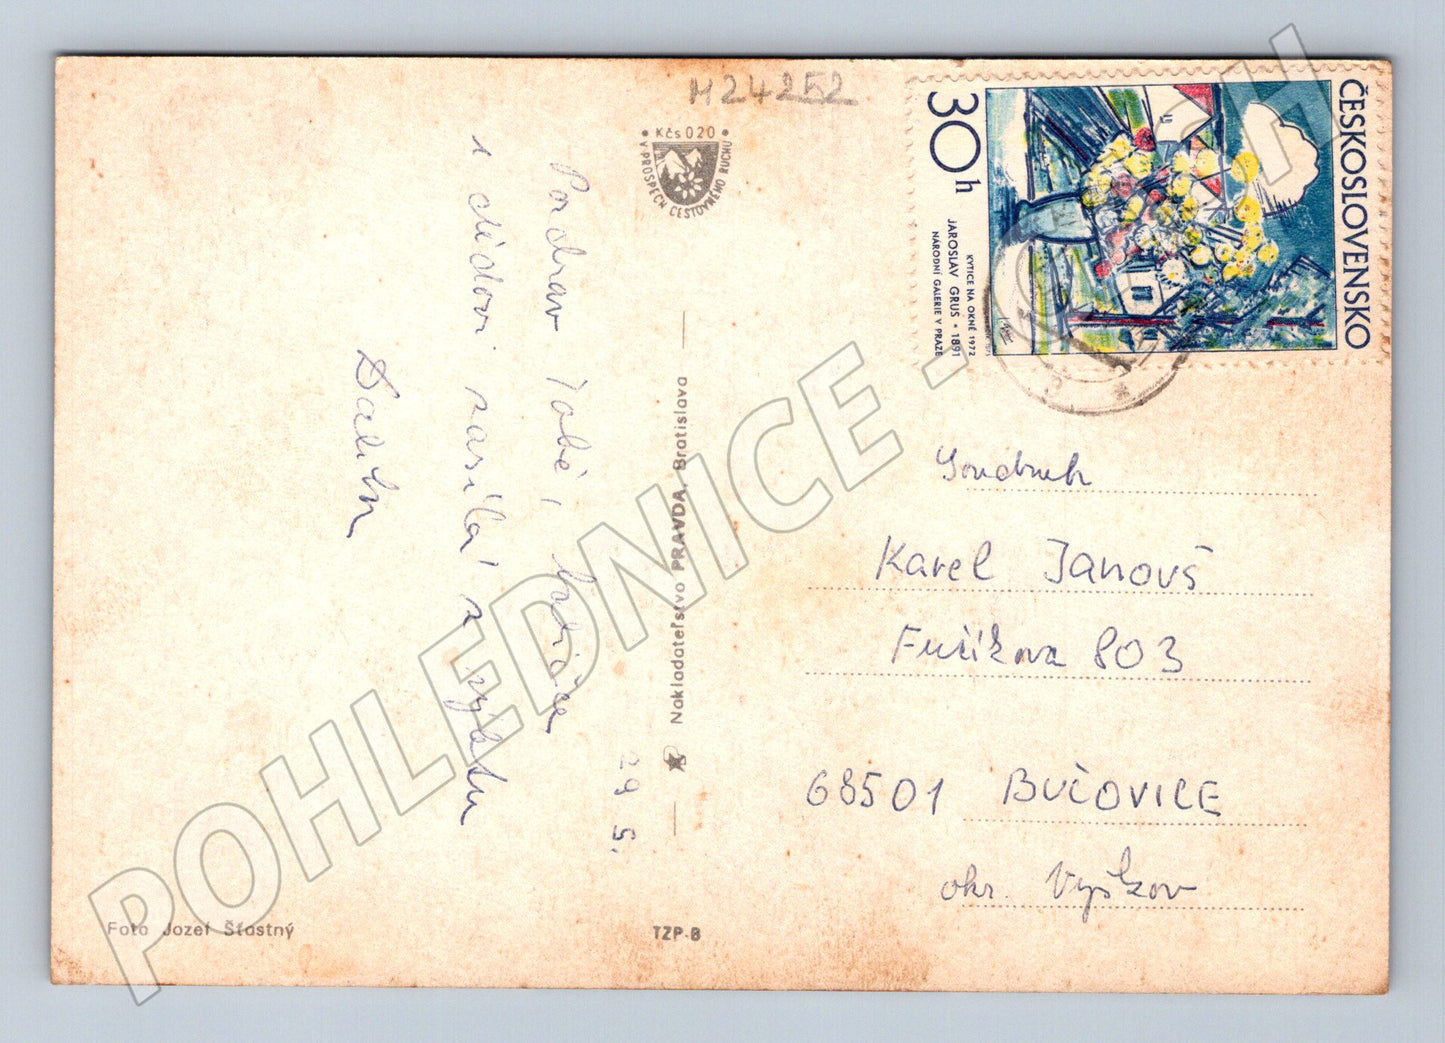 M24252
• Kčs 0 20 •
V PROSPECH CESTOVNÉHO RUCHU
ČESKOSLOVENSKO
30h
KYTICE NA OKNĚ 1972
JAROSLAV GRUS • 1891
NÁRODNÍ GALERIE V PRAZE
Pozdrav Tobě, babičce
i dědovi zasílá z výletu
29 5.
Nakladateľstvo PRAVDA, Bratislava
Soudruh
Karel Janouš
Fučíkova 803
68501 BUČOVICE
okr. Vyškov
Foto Jozef Šťastný
TZP-B
POHLEDNICE -